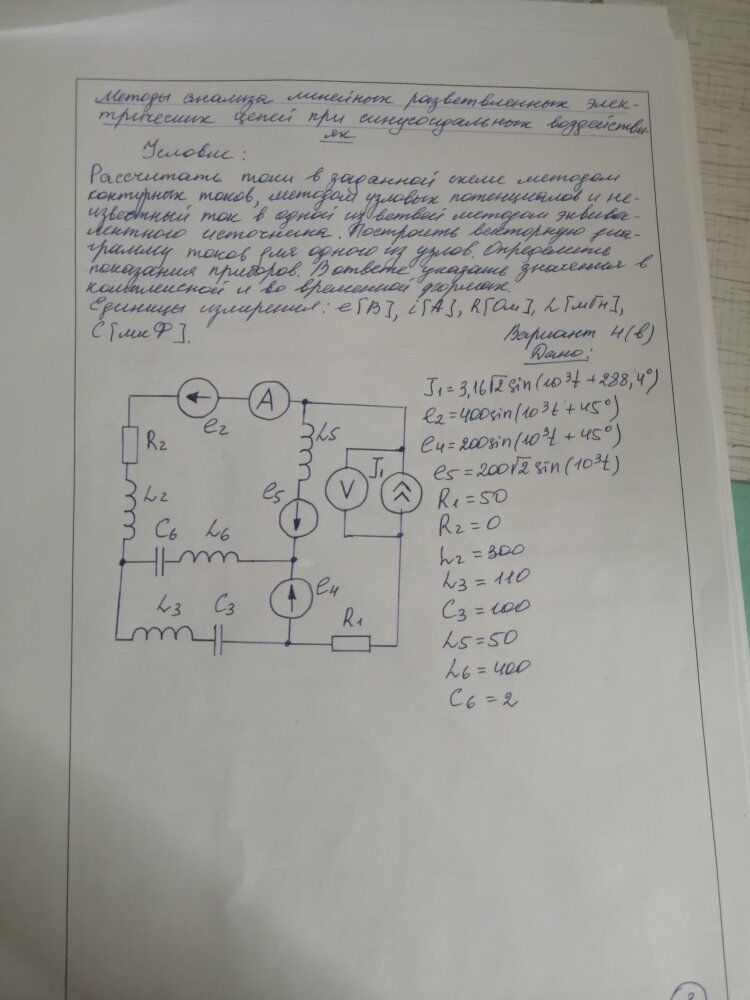 Методы анализа линейных разветвленных элек-
трических цепей при синусоидальных воздействи-
ях
Условие:
Рассчитать токи в заданной схеме методом
контурных токов, методом узловых потенциалов и не-
известный ток в одной из ветвей методом эквива-
лентного источника. Построить векторную диа-
грамму токов для одного из узлов. Определить
показания приборов. В ответе указать значения в
комплексной и во временной формах.
Единицы измерения: e[В], i[А], R[Ом], L[мГн],
C[мкФ].
Вариант 4(в)
Дано:
J1=3,16√2 sin(10³t+288,4°)
e2=400sin(10³t+45°)
e4=200sin(10³t+45°)
e5=200√2 sin(10³t)
R1=50
R2=0
L2=300
L3=110
C3=100
L5=50
L6=400
C6=2
e2
A
R2
L5
J1
e5
V
L2
C6
L6
e4
L3
C3
R1